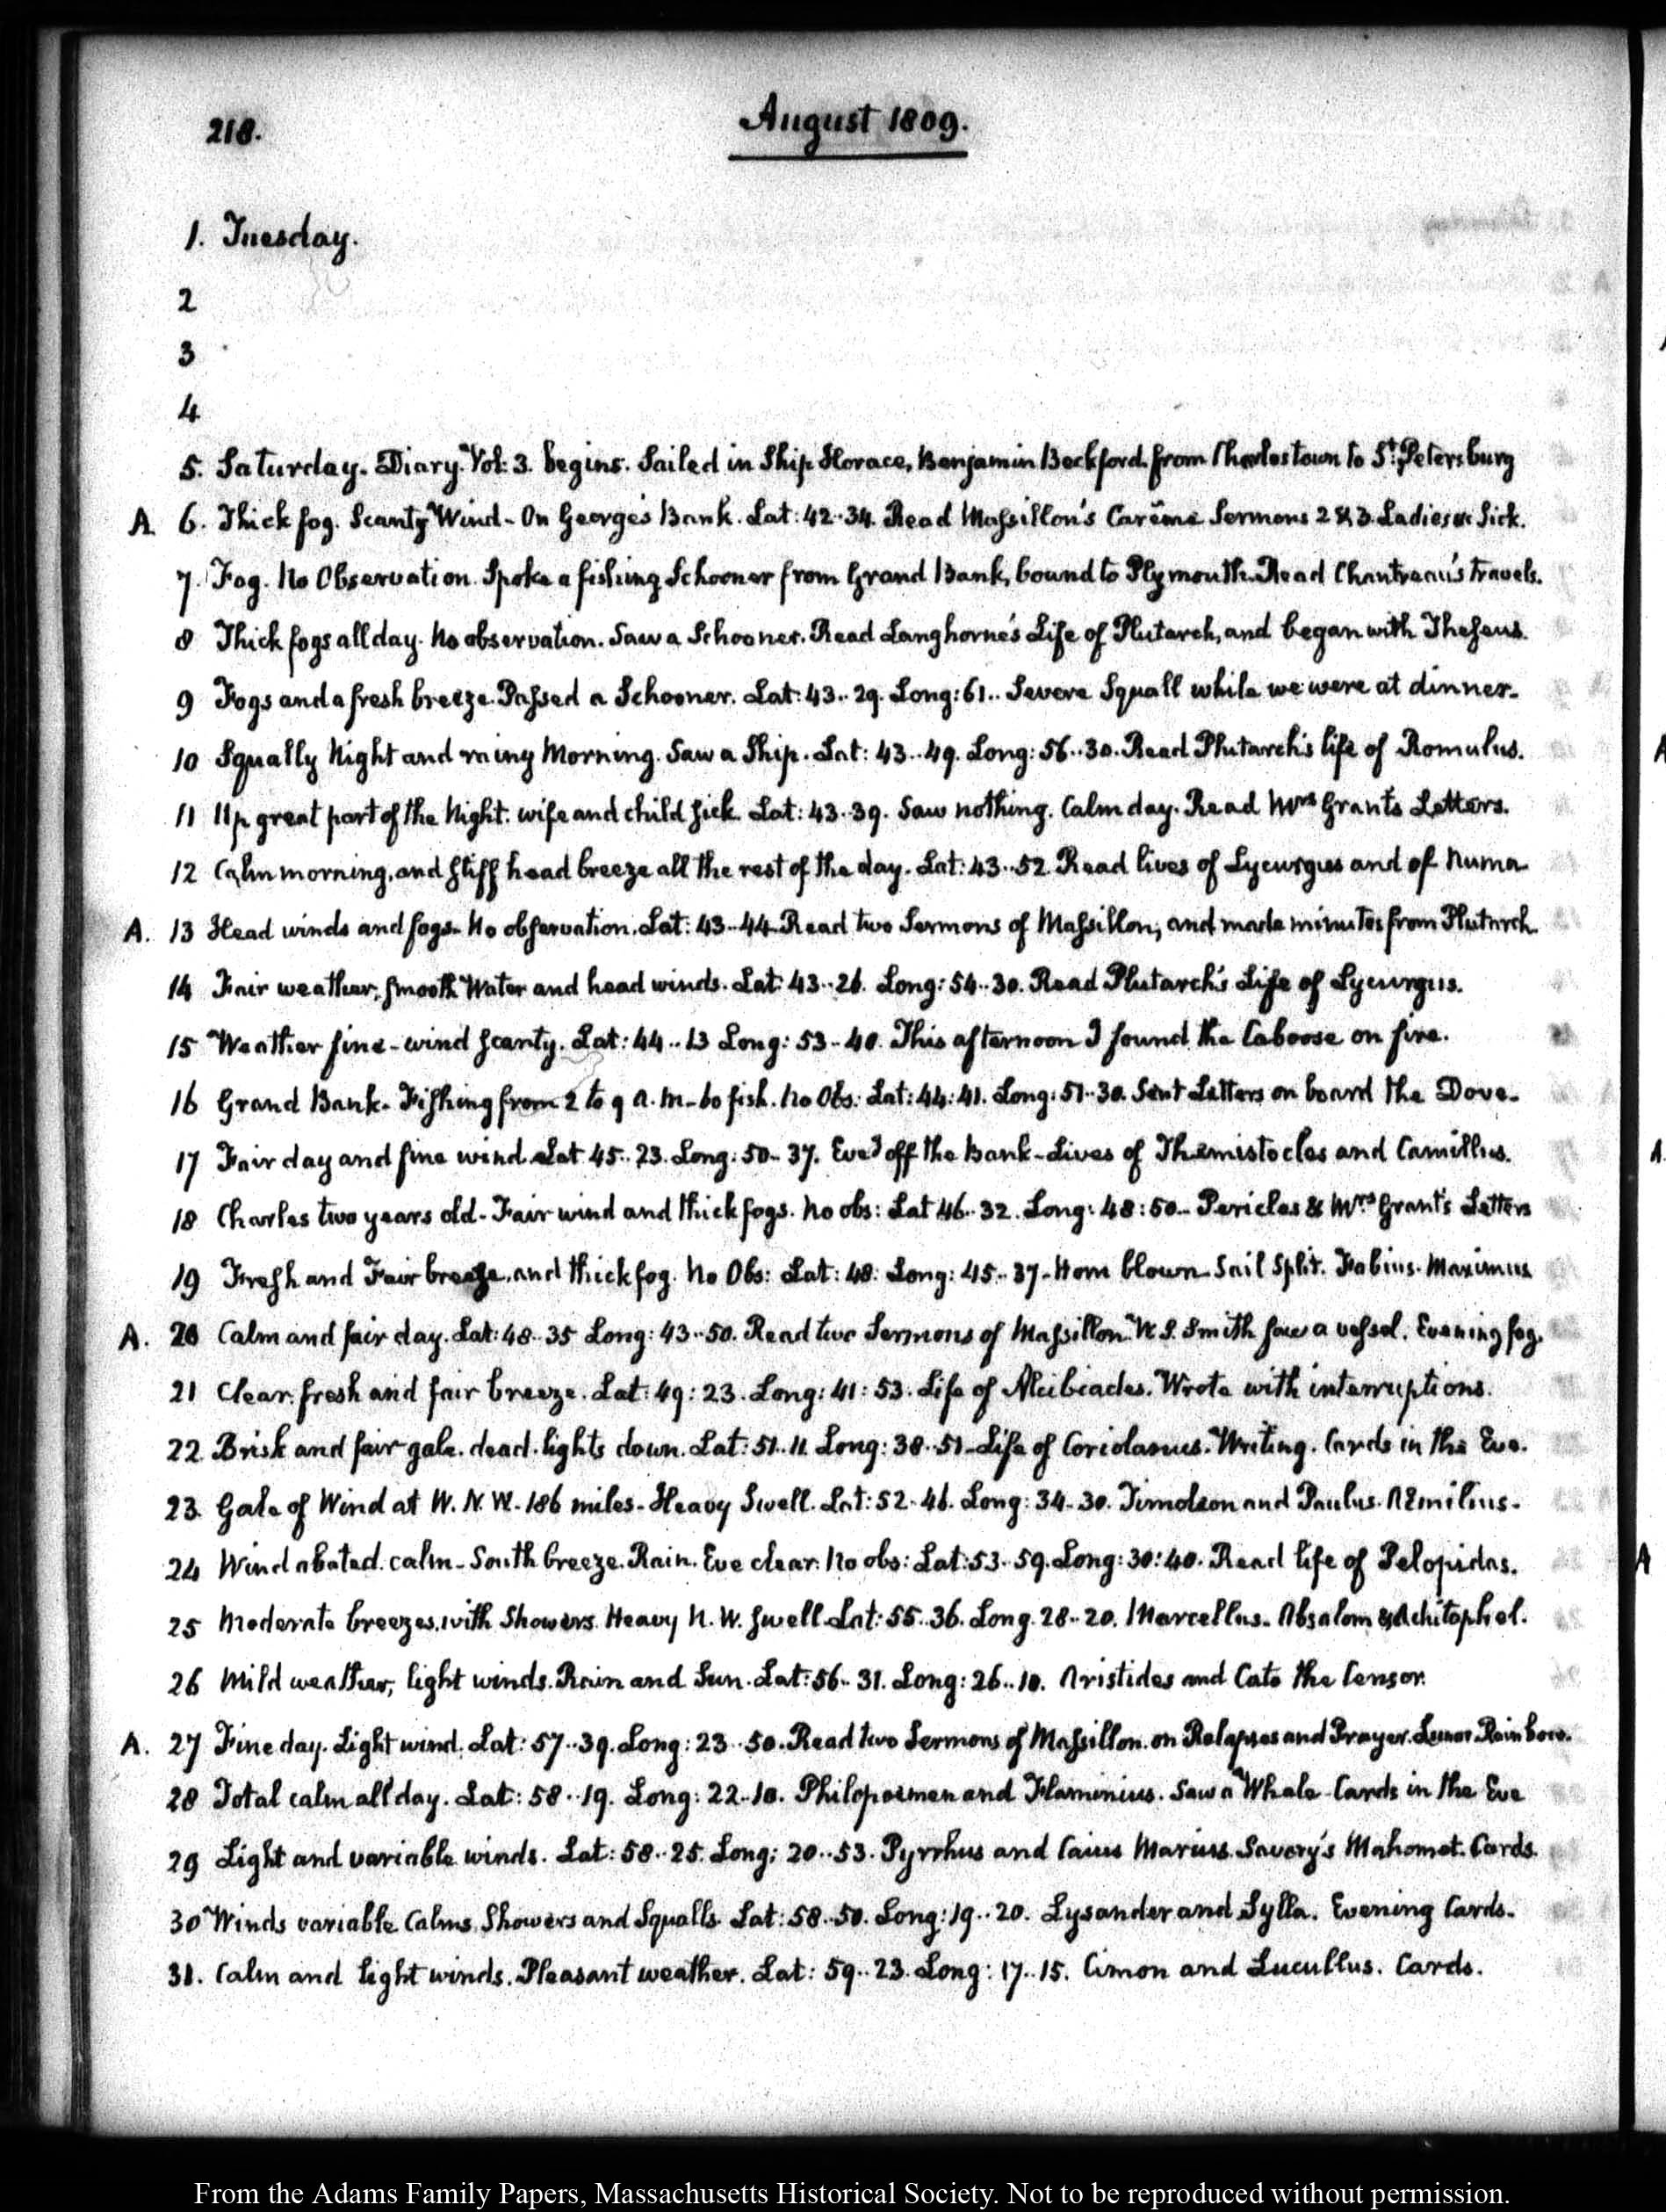 218.
August 1809.
1. Tuesday.
2
3
4
5. Saturday. Diary. Vol: 3. begins. Sailed in Ship Horace, Benjamin Beckford. from Charlestown to St. Petersburg
A. 6. Thick fog. Scanty Wind - On George's Bank. Lat: 42..34. Read Massillon's Carême Sermons 2 & 3. Ladies &c sick.
7. Fog. No Observation. Spoke a fishing Schooner from Grand Bank, bound to Plymouth. Read Chantreau's travels.
8 Thick fogs all day. No observation. Saw a Schooner. Read Langhorne's Life of Plutarch, and began with Theseus.
9 Fogs and a fresh breeze. Passed a Schooner. Lat: 43.. 29. Long: 61.. Severe Squall while we were at dinner.
10 Squally Night and rainy Morning. Saw a Ship. Lat: 43..49. Long: 56..30. Read Plutarch's life of Romulus.
11 Up great part of the Night. wife and child sick. Lat: 43..39. Saw nothing. Calm day. Read Mrs Grant's Letters.
12 Calm morning, and stiff head breeze all the rest of the day. Lat: 43..52. Read lives of Lycurgus and of Numa
A. 13 Head winds and fogs. No observation. Lat: 43..44. Read two Sermons of Massillon, and made minutes from Plutarch.
14 Fair weather, smooth Water and head winds. Lat: 43..26. Long: 54..30. Read Plutarch's Life of Lycurgus.
15 Weather fine - wind scanty. Lat: 44..13 Long: 53..40. This afternoon I found the Caboose on fire.
16 Grand Bank. Fishing from 2 to 9 A.M. - 60 fish. No Obs: Lat: 44:41. Long: 51..30. Sent Letters on board the Dove.
17 Fair day and fine wind. Lat 45..23. Long: 50..37. Eveg off the Bank - Lives of Themistocles and Camillus.
18 Charles two years old - Fair wind and thick fogs. No obs: Lat 46..32. Long: 48:50.. Pericles & Mrs. Grant's Letters
19 Fresh and Fair breeze, and thick fog. No Obs: Lat: 48: Long: 45..37 - Horn blown. Sail Split. Fabius. Maximus
A. 20 Calm and fair day. Lat: 48..35 Long: 43..50. Read two Sermons of Massillon. W. S. Smith saw a vessel. Evening fog.
21 Clear. fresh and fair breeze. Lat: 49:23. Long: 41:53. Life of Alcibiades. Wrote with interruptions.
22. Brisk and fair gale. dead-lights down. Lat: 51..11. Long: 38..51 - Life of Coriolanus. Writing. Cards in the Eve.
23. Gale of Wind at W. N. W. - 186 miles - Heavy Swell. Lat: 52..46. Long: 34..30. Timoleon and Paulus. Æmilius.
24 Wind abated. calm - South breeze. Rain. Eve clear. No obs: Lat: 53..59. Long: 30:40. Read life of Pelopidas.
25 Moderate breezes, with Showers. Heavy N. W. swell. Lat: 55..36. Long. 28..20. Marcellus. Absalom & Achitophel.
26 Mild weather, light winds. Rain and Sun. Lat: 56..31. Long: 26..10. Aristides and Cato the Censor.
A. 27 Fine day. Light wind. Lat: 57..39. Long: 23..50. Read two Sermons of Massillon. on Relapses and Prayer. Lunar Rainbow.
28 Total calm all day. Lat: 58..19. Long: 22..10. Philopoemen and Flaminius. Saw a Whale. Cards in the Eve
29 Light and variable winds. Lat: 58..25. Long: 20..53. Pyrrhus and Caius Marius. Savory's Mahomet. Cards.
30 Winds variable Calms. Showers and Squalls. Lat: 58..50. Long: 19..20. Lysander and Sylla. Evening Cards.
31. Calm and light winds. Pleasant weather. Lat: 59..23. Long: 17..15. Cimon and Lucullus. Cards.
From the Adams Family Papers, Massachusetts Historical Society. Not to be reproduced without permission.